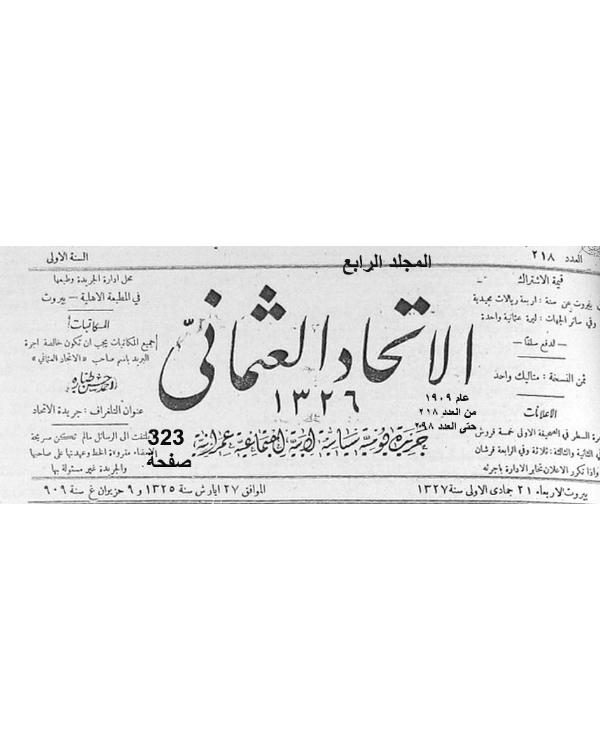 العدد ٢١٨
السنة الاولى
المجلد الرابع
قيمة الاشتراك
في بيروت عن سنة : اربعة ريالات مجيدية
وفي سائر الجهات : ليرة عثمانية واحدة
— تدفع سلفاً —
ثمن النسخة : متاليك واحد
الاعلانات
السطر في الصحيفة الاولى خمسة قروش
في الثانية والثالثة : ثلاثة وفي الرابعة قرشان
واذا تكرر الاعلان تخابر الادارة باجرته
الاتحاد العثماني
١٣٢٦
عام ١٩٠٩
من العدد ٢١٨
حتى العدد ٢٩٨
جريدة يومية سياسية ادبية اجتماعية عمرانية
محل ادارة الجريدة وطبعها
في المطبعة الاهلية — بيروت
المكاتبات :
جميع المكاتبات يجب ان تكون خالصة اجرة
البريد باسم صاحب « الاتحاد العثماني »
احمد حسن طباره
عنوان التلغراف : جريدة الاتحاد
الى الرسائل مالم تكن صريحة
الامضاء مقروءة الخط وعهدتها على صاحبها
والجريدة غير مسئولة بها
323
صفحة
بيروت الاربعاء ٢١ جمادى الاولى سنة ١٣٢٧
الموافق ٢٧ ايار ش سنة ١٣٢٥ و ٩ حزيران غ سنة ٩٠٩